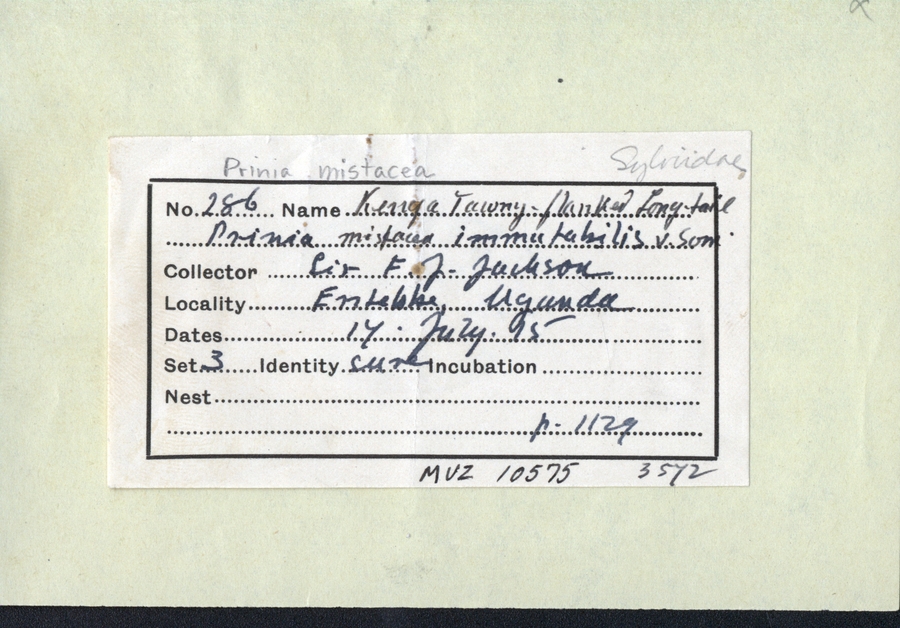 Prinia mistacea Sylviidae
No. 286 Name Kenya Tawny-flanked Long-tail
Prinia mistacea immutabilis v. Som.
Collector Sir F. J. Jackson
Locality Entebbe, Uganda
Dates 14. July. 95
Set 3 Identity sure Incubation
Nest
p. 1129
MVZ 10575 3572